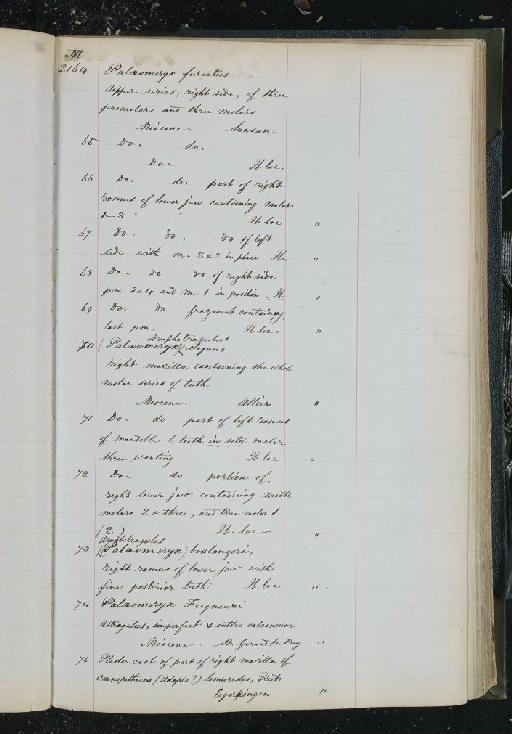 M
2164 Palæomeryx furcatus
Upper series, right side, of three
premolars and three molars
Miocene - Sansan.
65 Do. do.
Do. - Ib. loc.
66 Do. do. part of right
ramus of lower jaw containing molars
2-3 Ib. loc "
67 Do. Do. Do of left
side with m. 2 & 3 in place Ib. "
68 Do. do Do of right side
pm. 3 & 4 and m. 1 in position. Ib. "
69 Do. Do fragment containing
last pm. Ib. loc. "
Amphitragulus
70 (Palæomeryx) elegans
right maxilla containing the whole
molar series of teeth
Miocene. Allier "
71 Do. do part of left ramus
of mandible & teeth in
three wanting Ib. loc "
72 Do. do portion of
right lower jaw containing milk
molars 2 & three, and true molar 1
(2.) Ib. loc - "
Amphitragulus
73 (Palæomeryx) boulangeri,
right ramus of lower jaw with
five posterior teeth. Ib. loc "
74 Palæomeryx Feignouxi
Astragalus, imperfect & entire calcaneum
Miocene - St. Gerand-le-Puy "
75 Plaster cast of part of right maxilla of
Cænopithecus (Adapis?) lemuroides, Rüt.
Egerkingen "